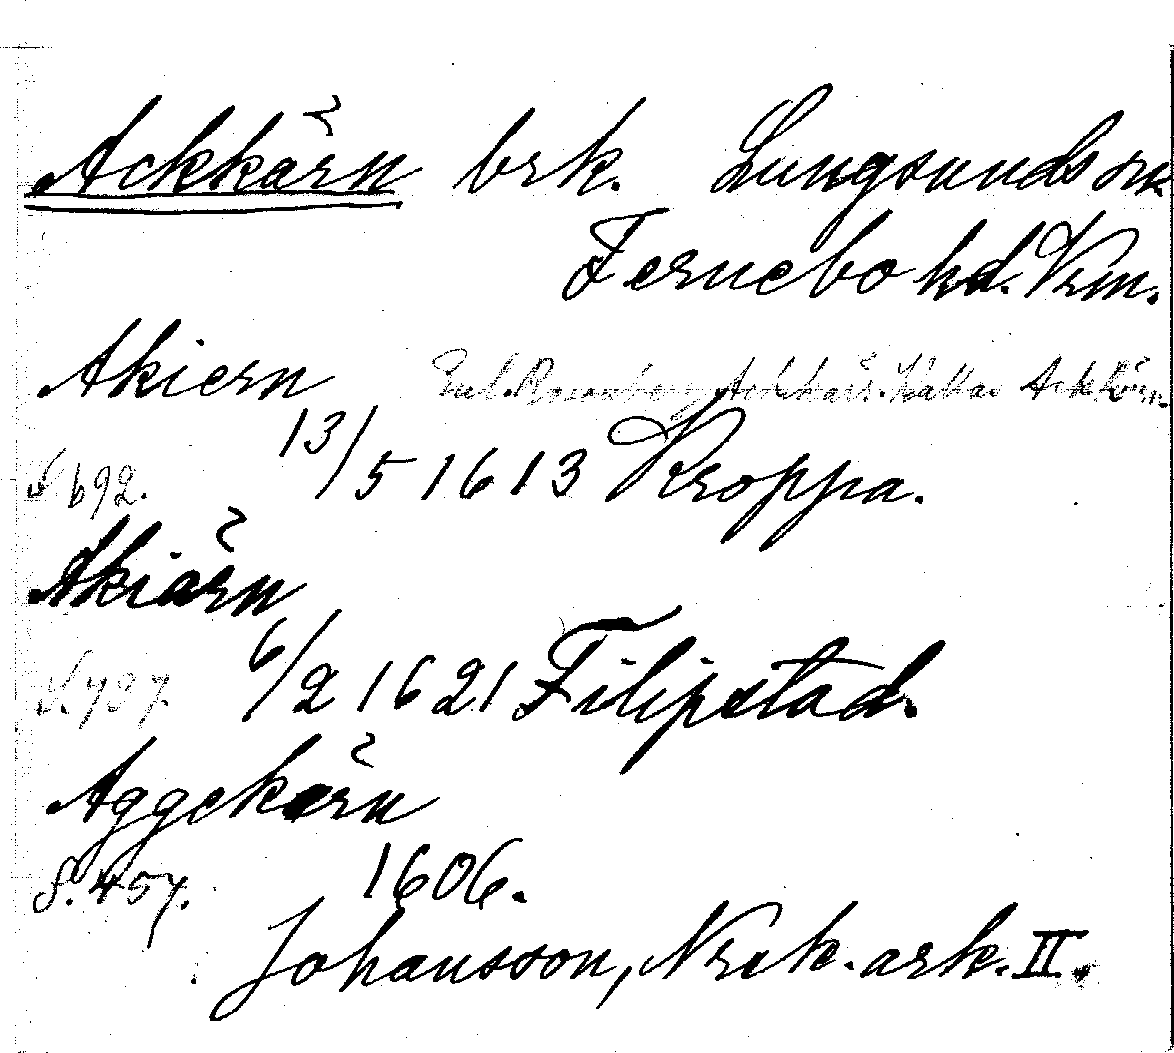 Ackkärn brk. Lungsunds sn
Fernebo hd. Vrm.
Akiern Enl. Rosenberg Ackkärr. Kallas Ackkärn
13/5 1613 Kroppa.
S. 692.
Akiärn
S. 737. 6/2 1621 Filipstad.
Aggekärn
S. 457. 1606.
Johansson, Nrck. ark. II.